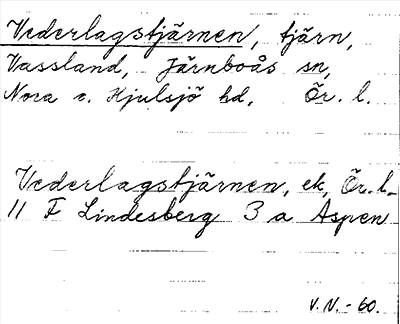 Vederlagstjärnen, tjärn,
Vassland, Järnboås sn,
Nora o. Hjulsjö hd, Ör. l.
Vederlagstjärnen, ek, Ör. l.
11 F Lindesberg 3 a Aspen
V. N. - 60.